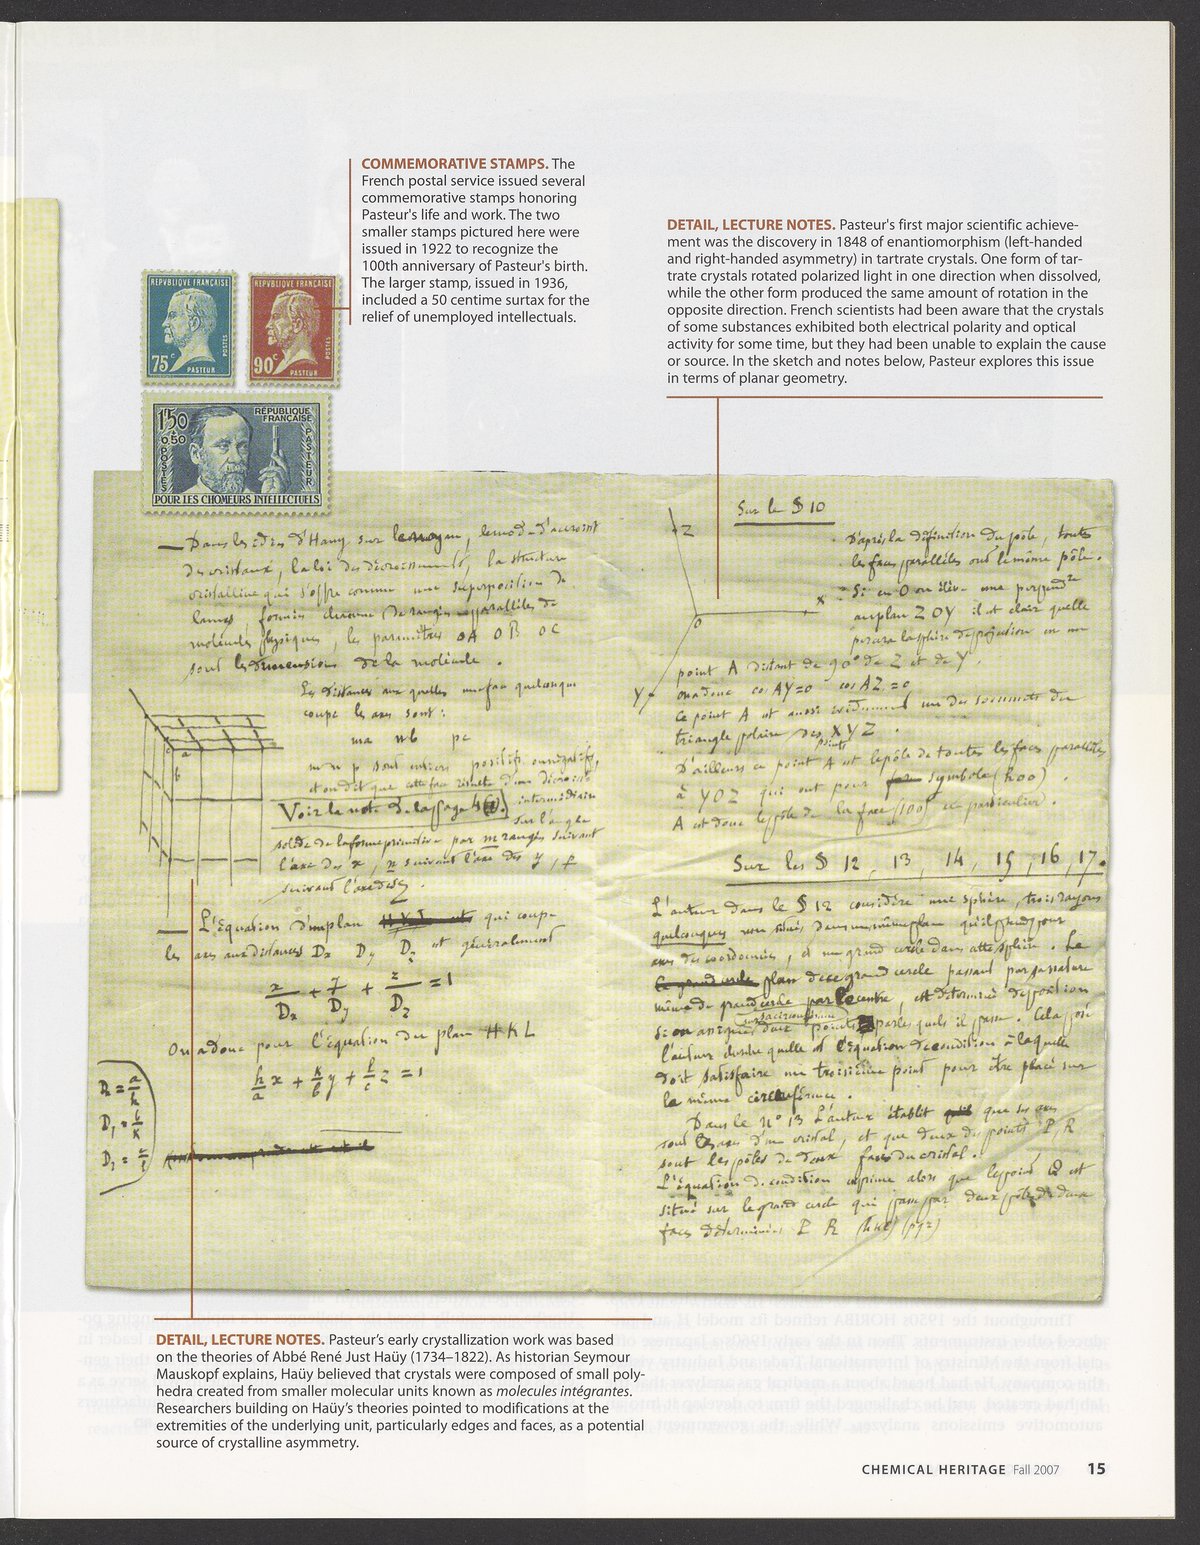 COMMEMORATIVE STAMPS. The
French postal service issued several
commemorative stamps honoring
Pasteur's life and work. The two
smaller stamps pictured here were
issued in 1922 to recognize the
100th anniversary of Pasteur's birth.
The larger stamp, issued in 1936,
included a 50 centime surtax for the
relief of unemployed intellectuals.
DETAIL, LECTURE NOTES. Pasteur's first major scientific achieve-
ment was the discovery in 1848 of enantiomorphism (left-handed
and right-handed asymmetry) in tartrate crystals. One form of tar-
trate crystals rotated polarized light in one direction when dissolved,
while the other form produced the same amount of rotation in the
opposite direction. French scientists had been aware that the crystals
of some substances exhibited both electrical polarity and optical
activity for some time, but they had been unable to explain the cause
or source. In the sketch and notes below, Pasteur explores this issue
in terms of planar geometry.
REPVBLIQVE FRANÇAISE
75c
POSTES
PASTEUR
REPVBLIQVE FRANÇAISE
90c
POSTES
PASTEUR
1f50
+0,50
RÉPUBLIQUE
FRANÇAISE
POSTES
PASTEUR
POUR LES CHÔMEURS INTELLECTUELS
cristalline qui s'offre comme une superposition de
molécules physiques, les paramètres OA OB OC
sont les dimensions de la molécule.
Les distances aux quelles une face quelconque
coupe les axes sont:
ma nb pc
m n p sont entiers positifs ou négatifs,
solide de la forme primitive par m rangées suivant
l'axe des x, n suivant l'axe des y, p
suivant l'axe des z.
a
b
L'Equation d'un plan qui coupe
les axes aux distances Dx Dy Dz est généralement
x/Dx + y/Dy + z/Dz = 1
On a donc pour l'équation du plan HKL
h/a x + k/b y + l/c z = 1
Sur le § 10
Z
X
O
Y
D'après la définition du pôle, toutes
les faces parallèles ont le même pôle.
Si en O on élève une perpend
au plan ZOY il est clair quelle
percera la sphère de projection en un
point A distant de 90° de Z et de Y.
on a donc cos AY=0 cos AZ=0
Ce point A est aussi évidemment un des sommets du
triangle polaire des points XYZ.
D'ailleurs ce point A est le pôle de toutes les faces parallèles
à YOZ qui ont pour symbole (h00).
A est donc le pôle de la face (100) en particulier.
Sur les § 12, 13, 14, 15, 16, 17.
L'auteur dans le § 12 considère une sphère, trois rayons
l'auteur cherche quelle est l'équation de condition à laquelle
doit satisfaire un troisième point pour être placé sur
la même circonférence.
Dans le n° 13 L'auteur établit que ses axes
sont les axes d'un cristal, et que deux des points P, R
sont les pôles de deux faces du cristal.
L'équation de condition exprime alors que le point Q est
situé sur le grand cercle qui passe par deux pôles de deux
faces déterminées P R (hkl) (pqr)
DETAIL, LECTURE NOTES. Pasteur's early crystallization work was based
on the theories of Abbé René Just Haüy (1734–1822). As historian Seymour
Mauskopf explains, Haüy believed that crystals were composed of small poly-
hedra created from smaller molecular units known as molecules intégrantes.
Researchers building on Haüy's theories pointed to modifications at the
extremities of the underlying unit, particularly edges and faces, as a potential
source of crystalline asymmetry.
CHEMICAL HERITAGE Fall 2007 15